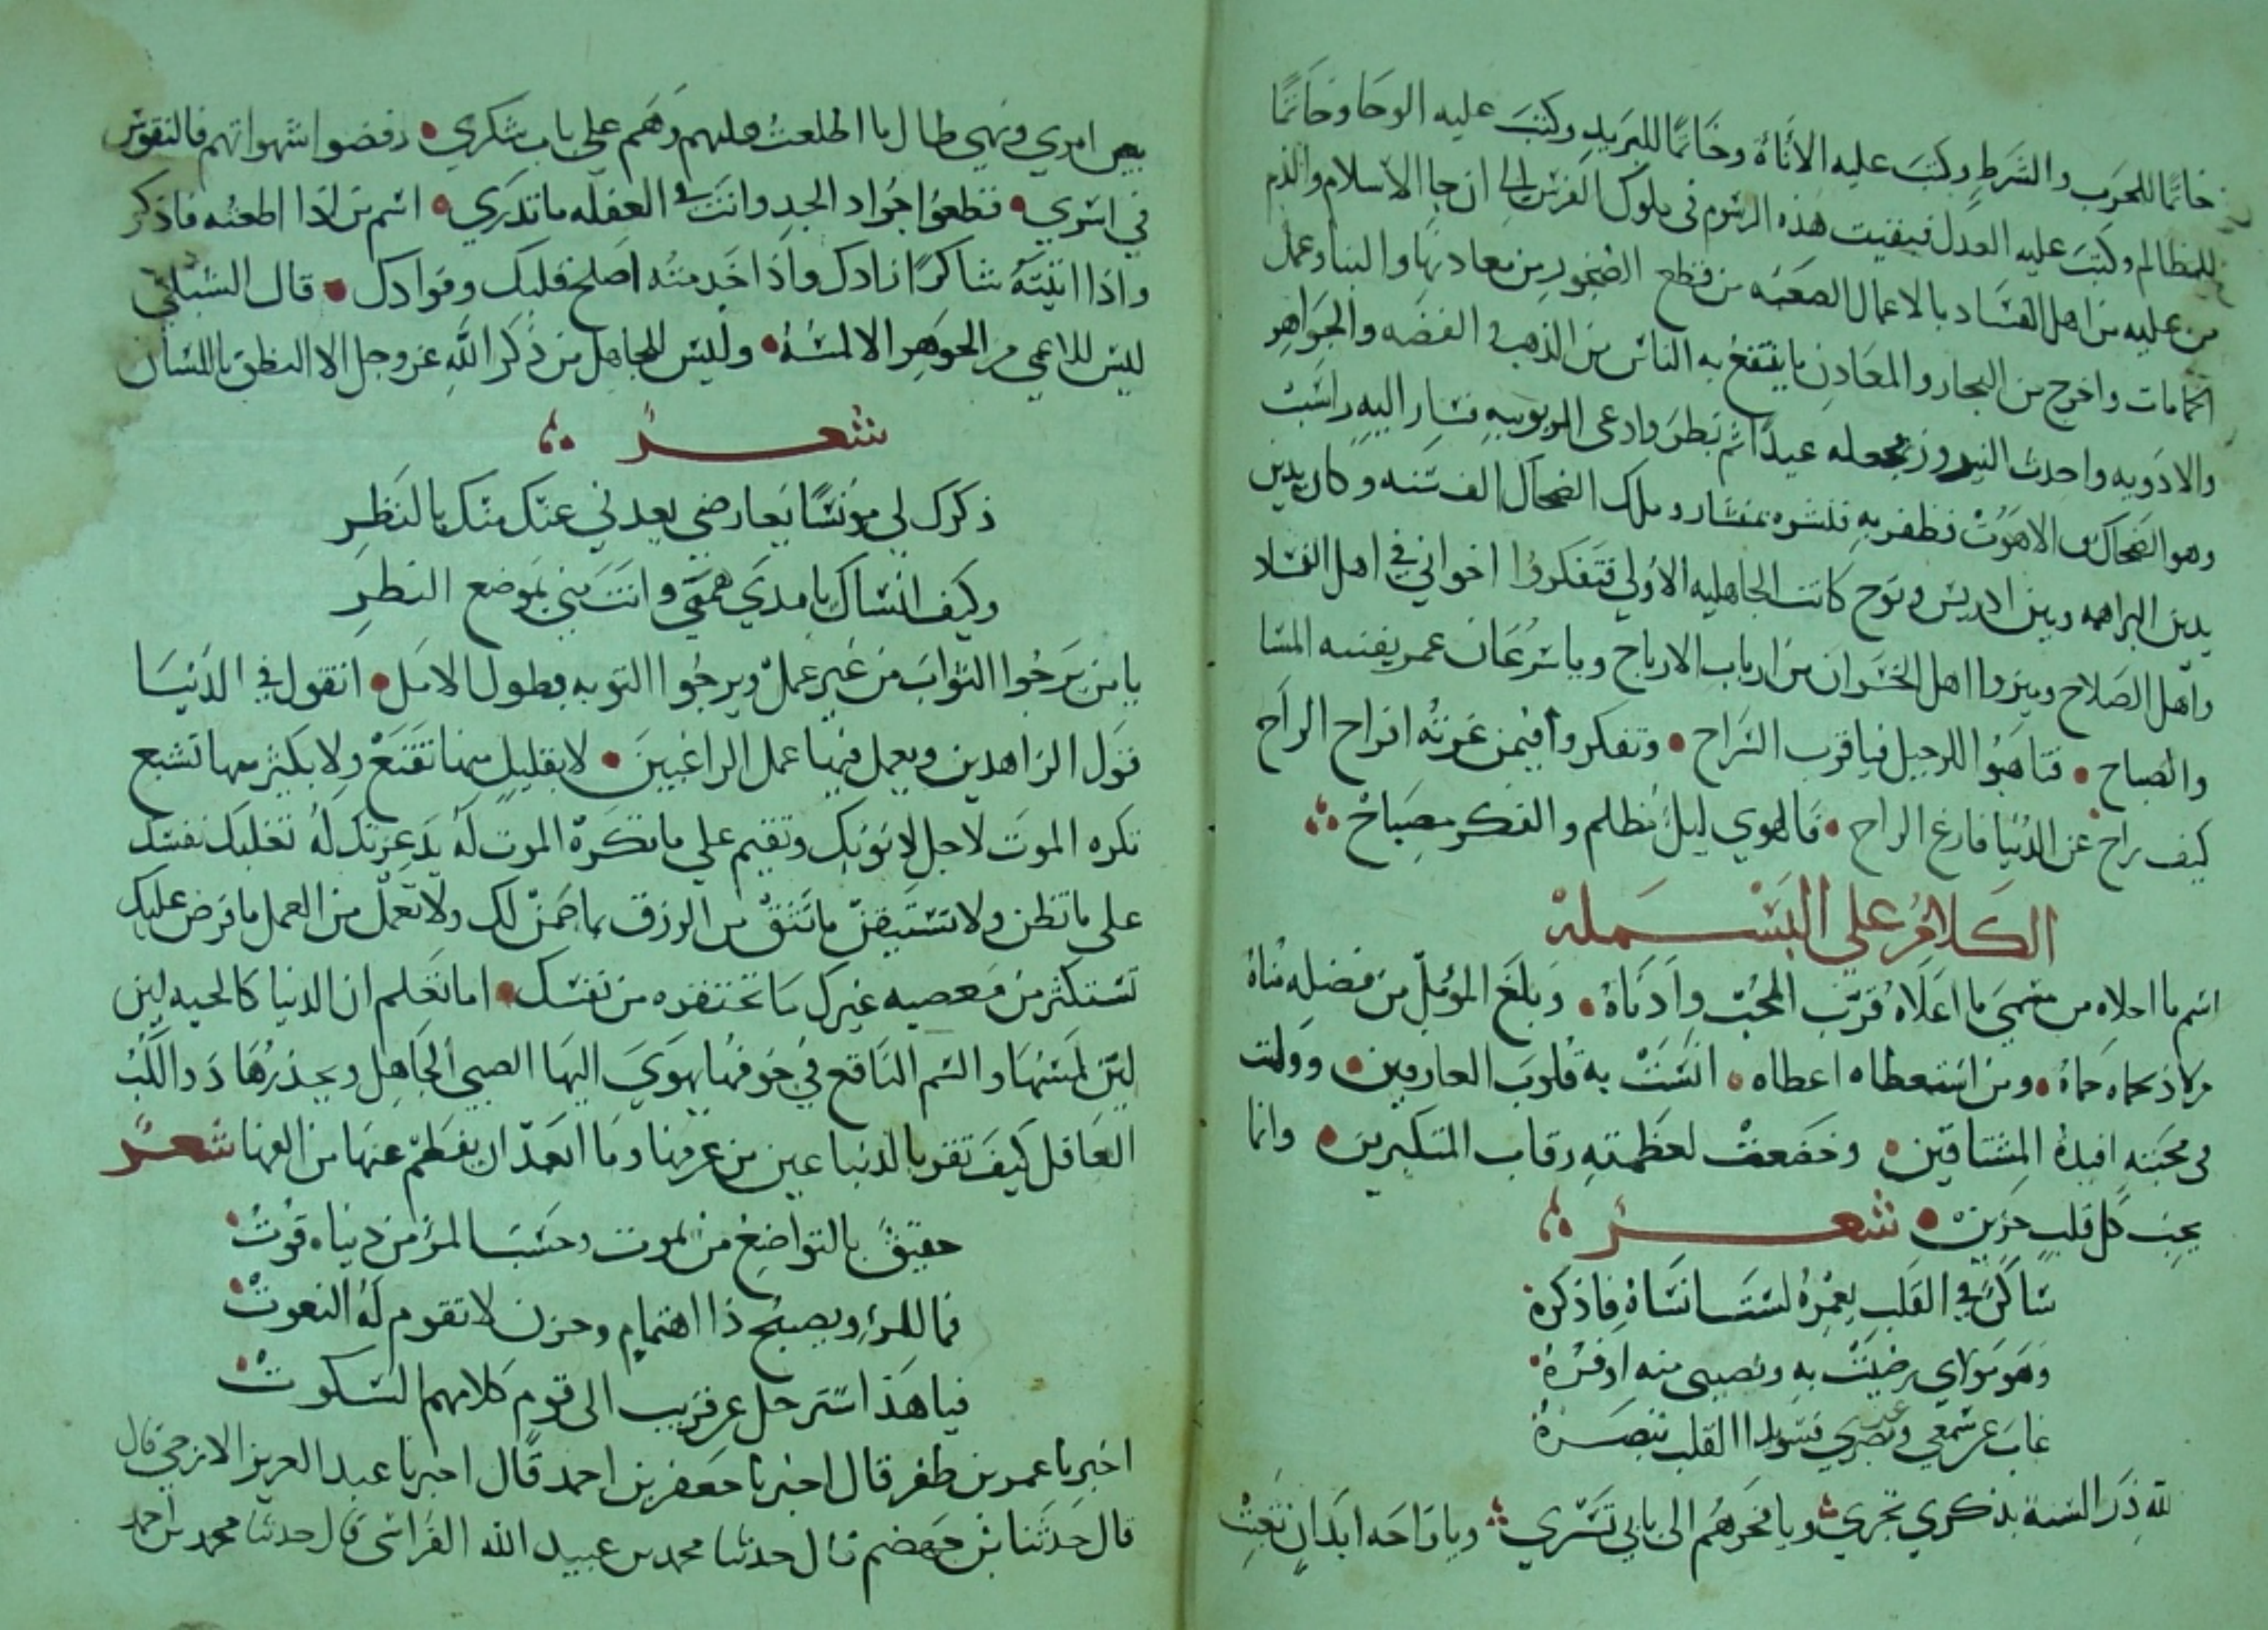 خاتمًا للحرب والشرط وكتب عليه الاناة وخاتمًا للبريد وكتب عليه الوحا وخاتمًا
للمظالم وكتب عليه العدل فبقيت هذه الرسوم فى ملوك الفرس الى ان جا الاسلام والزم
من عليه من اهل الفساد بالاعمال الصعبه من قطع الصخور من معادنها والبنا وعمل
الحمامات واخرج من البحار والمعادن ما ينتفع به الناس من الذهب و الفضه والجواهر
والادويه واحدث النيروز فجعله عيدًا ثم بطر وادعى الربوبيه فسار اليه راست
وهو الضحاك الاهوت فظفر به فنشره بمنشار وملك الضحاك الف سنه وكان يدين
بدين البراهمه وبين ادريس ونوح كانت الجاهليه الاولي فتفكروا اخواني في اهل الفساد
واهل الصلاح وميزوا اهل الخسران من ارباب الارباح ويا سرعان عمر يفنيه المسا
والصباح • فتاهبوا للرحيل فيا قرب السراح • وتفكروا فيمن غرته افراح الراح
كيف راح عن الدنيا فارغ الراح • فالهوي ليل مظلم والفكر مصباح
الكلام علي البسملة
اسم ما احلاه من مسمي ما اعلاه قرب المحب وادناه • وبلغ المؤمل من فضله مناه
من لاذ بحماه حماه • ومن استعطاه اعطاه • انست به قلوب العارفين • وولهت
فى محبته افيدة المشتاقين • وخضعت لعظمته رقاب المتكبرين • وانما
يحب كل قلب حزين • شعر
ساكن في القلب يعمره لست انساه فاذكره
وهو مولاي رضيت به ونصيبى منه اوفره
غاب عن سمعي وعن بصري فسويدا القلب تبصره
لله در السنة بذكري تجري ويا فخرهم الى بابي تسري ويا راحه ابدان تعبت
بين امري ونهي طال ما اطلعت عليهم وهم علي باب شكري • رفضوا شهواتهم فالنفوس
في اسري • فقطعوا جواد الجد وانت فى الغفله ما تدري • اسم من اذا اطعته فاذكر
واذا اتيته شاكرًا زادك واذا خدمته اصلح قلبك وفوادك • قال الشبلي
ليس للاعمي من الجوهر الا لمسه • وليس للجاهل من ذكر الله عز وجل الا النطق باللسان
شعر
ذكرك لي مؤنسًا يعارضي يعدني عنك منك بالنظر
وكيف انساك يا مدي هممي وانت مني بموضع النظر
يا من يرجوا الثواب من غير عمل ويرجوا التوبه بطول الامل • اتقول في الدنيا
قول الزاهدين ويعمل فيها عمل الراغبين • لا بقليل منها تقنع ولا بكثير منها تشبع
تكره الموت لاجل ذنوبك وتقيم علي ما تكره الموت له يد عزتك له تغلبك نفسك
علي ما تظن ولا تستيقن ما تثق من الرزق بما ضمن لك ولا تعمل من العمل ما فرض عليك
تستكثر من معصيه غيرك ما تحتقره من نفسك • اما تعلم ان الدنيا كالحيه لين
لين لمسها والسم الناقع في جوفها يهوي اليها الصبي الجاهل ويحذرها ذو اللب
العاقل كيف تقر بالدنيا عين من عرفها وما ابعد ان يفطم عنها من الفها شعر
حقيق بالتواضع من يموت وحسب المرء من دنياه قوت
فما للمرء ويصبح ذا اهتمام وحزن لا تقوم له النعوت
فيا هذا سترحل عن قريب الى قوم كلامهم السكوت
اخبرنا عمر بن ظفر قال اخبرنا جعفر بن احمد قال اخبرنا عبد العزيز الازجي قال
قال حدثنا بن جهضم قال حدثنا محمد بن عبيد الله القراشى قال حدثنا محمد بن احمد